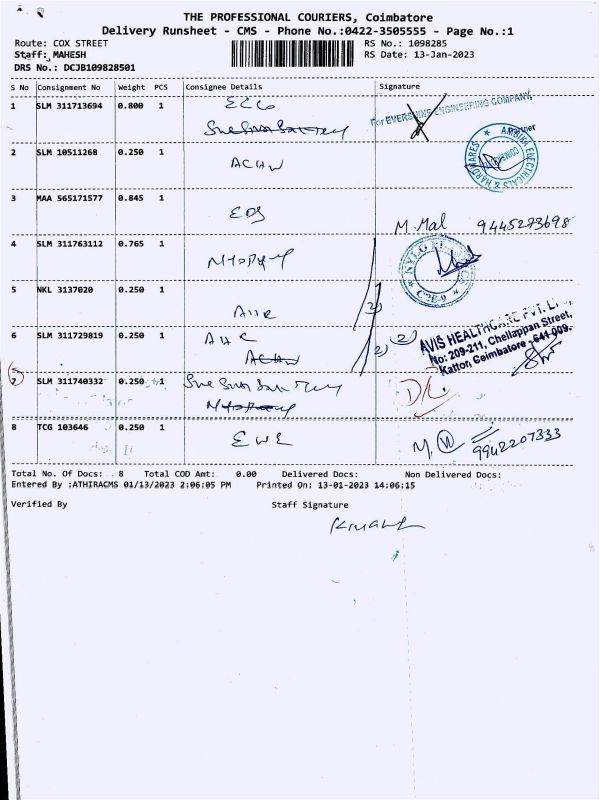 THE PROFESSIONAL COURIERS, Coimbatore
Delivery Runsheet - CMS - Phone No.:0422-3505555 - Page No.:1
Route: COX STREET RS No.: 1098285
Staff: MAHESH RS Date: 13-Jan-2023
DRS No.: DCJB109828501
S No Consignment No Weight PCS Consignee Details Signature
1 SLM 311713694 0.800 1
For EVERSHINE ENGINEERING COMPANY,
Partner
2 SLM 10511268 0.250 1 ACHW
ELECTRICALS & HARDWARES
3 MAA 565171577 0.845 1 EDS M. Mal 9445273698
4 SLM 311763112 0.765 1
CBE-9
5 NKL 3137020 0.250 1 2)
6 SLM 311729819 0.250 1 AHC 2) 2)
ACHW
AVIS HEALTHCARE PVT. LTD.
No: 209-211, Chellappan Street,
Kattoor, Coimbatore - 641 009.
7 SLM 311740332 0.250 1
8 TCG 103646 0.250 1 EWE M. 9942207333
Total No. Of Docs: 8 Total COD Amt: 0.00 Delivered Docs: Non Delivered Docs:
Entered By :ATHIRACMS 01/13/2023 2:06:05 PM Printed On: 13-01-2023 14:06:15
Verified By Staff Signature